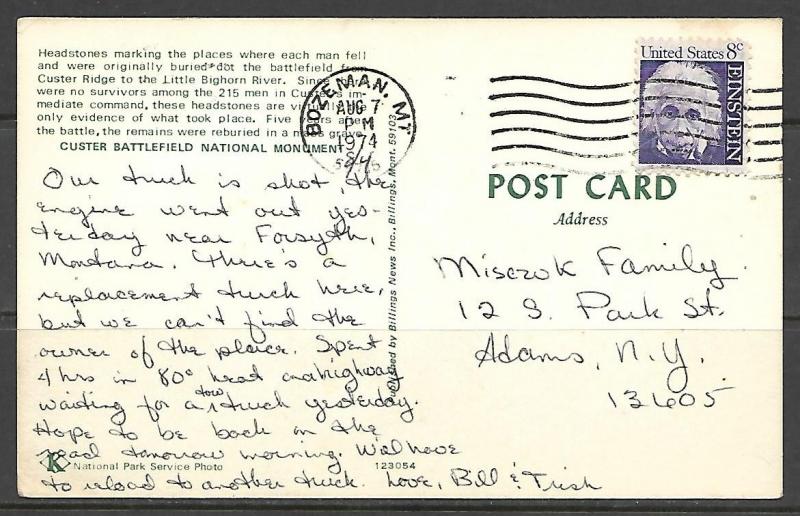 Headstones marking the places where each man fell
and were originally buried dot the battlefield from
Custer Ridge to the Little Bighorn River. Since there
were no survivors among the 215 men in Custer's im-
mediate command, these headstones are virtually the
only evidence of what took place. Five years after
the battle, the remains were reburied in a mass grave.
CUSTER BATTLEFIELD NATIONAL MONUMENT
Our truck is shot, the
engine went out yes-
terday near Forsyth,
Montana. There's a
replacement truck here,
but we can't find the
owner of the place. Spent
4 hrs in 80° heat on a highway
waiting for a tow truck yesterday.
Hope to be back on the
road tomorrow morning. We'll have
to reload to another truck. Love, Bill & Trish
K
National Park Service Photo
123054
Published by Billings News Inc., Billings, Mont. 59103
BOZEMAN, MT
AUG 7
PM
1974
United States 8c
EINSTEIN
POST CARD
Address
Miscrok Family
12 S. Park St.
Adams, N.Y.
13605